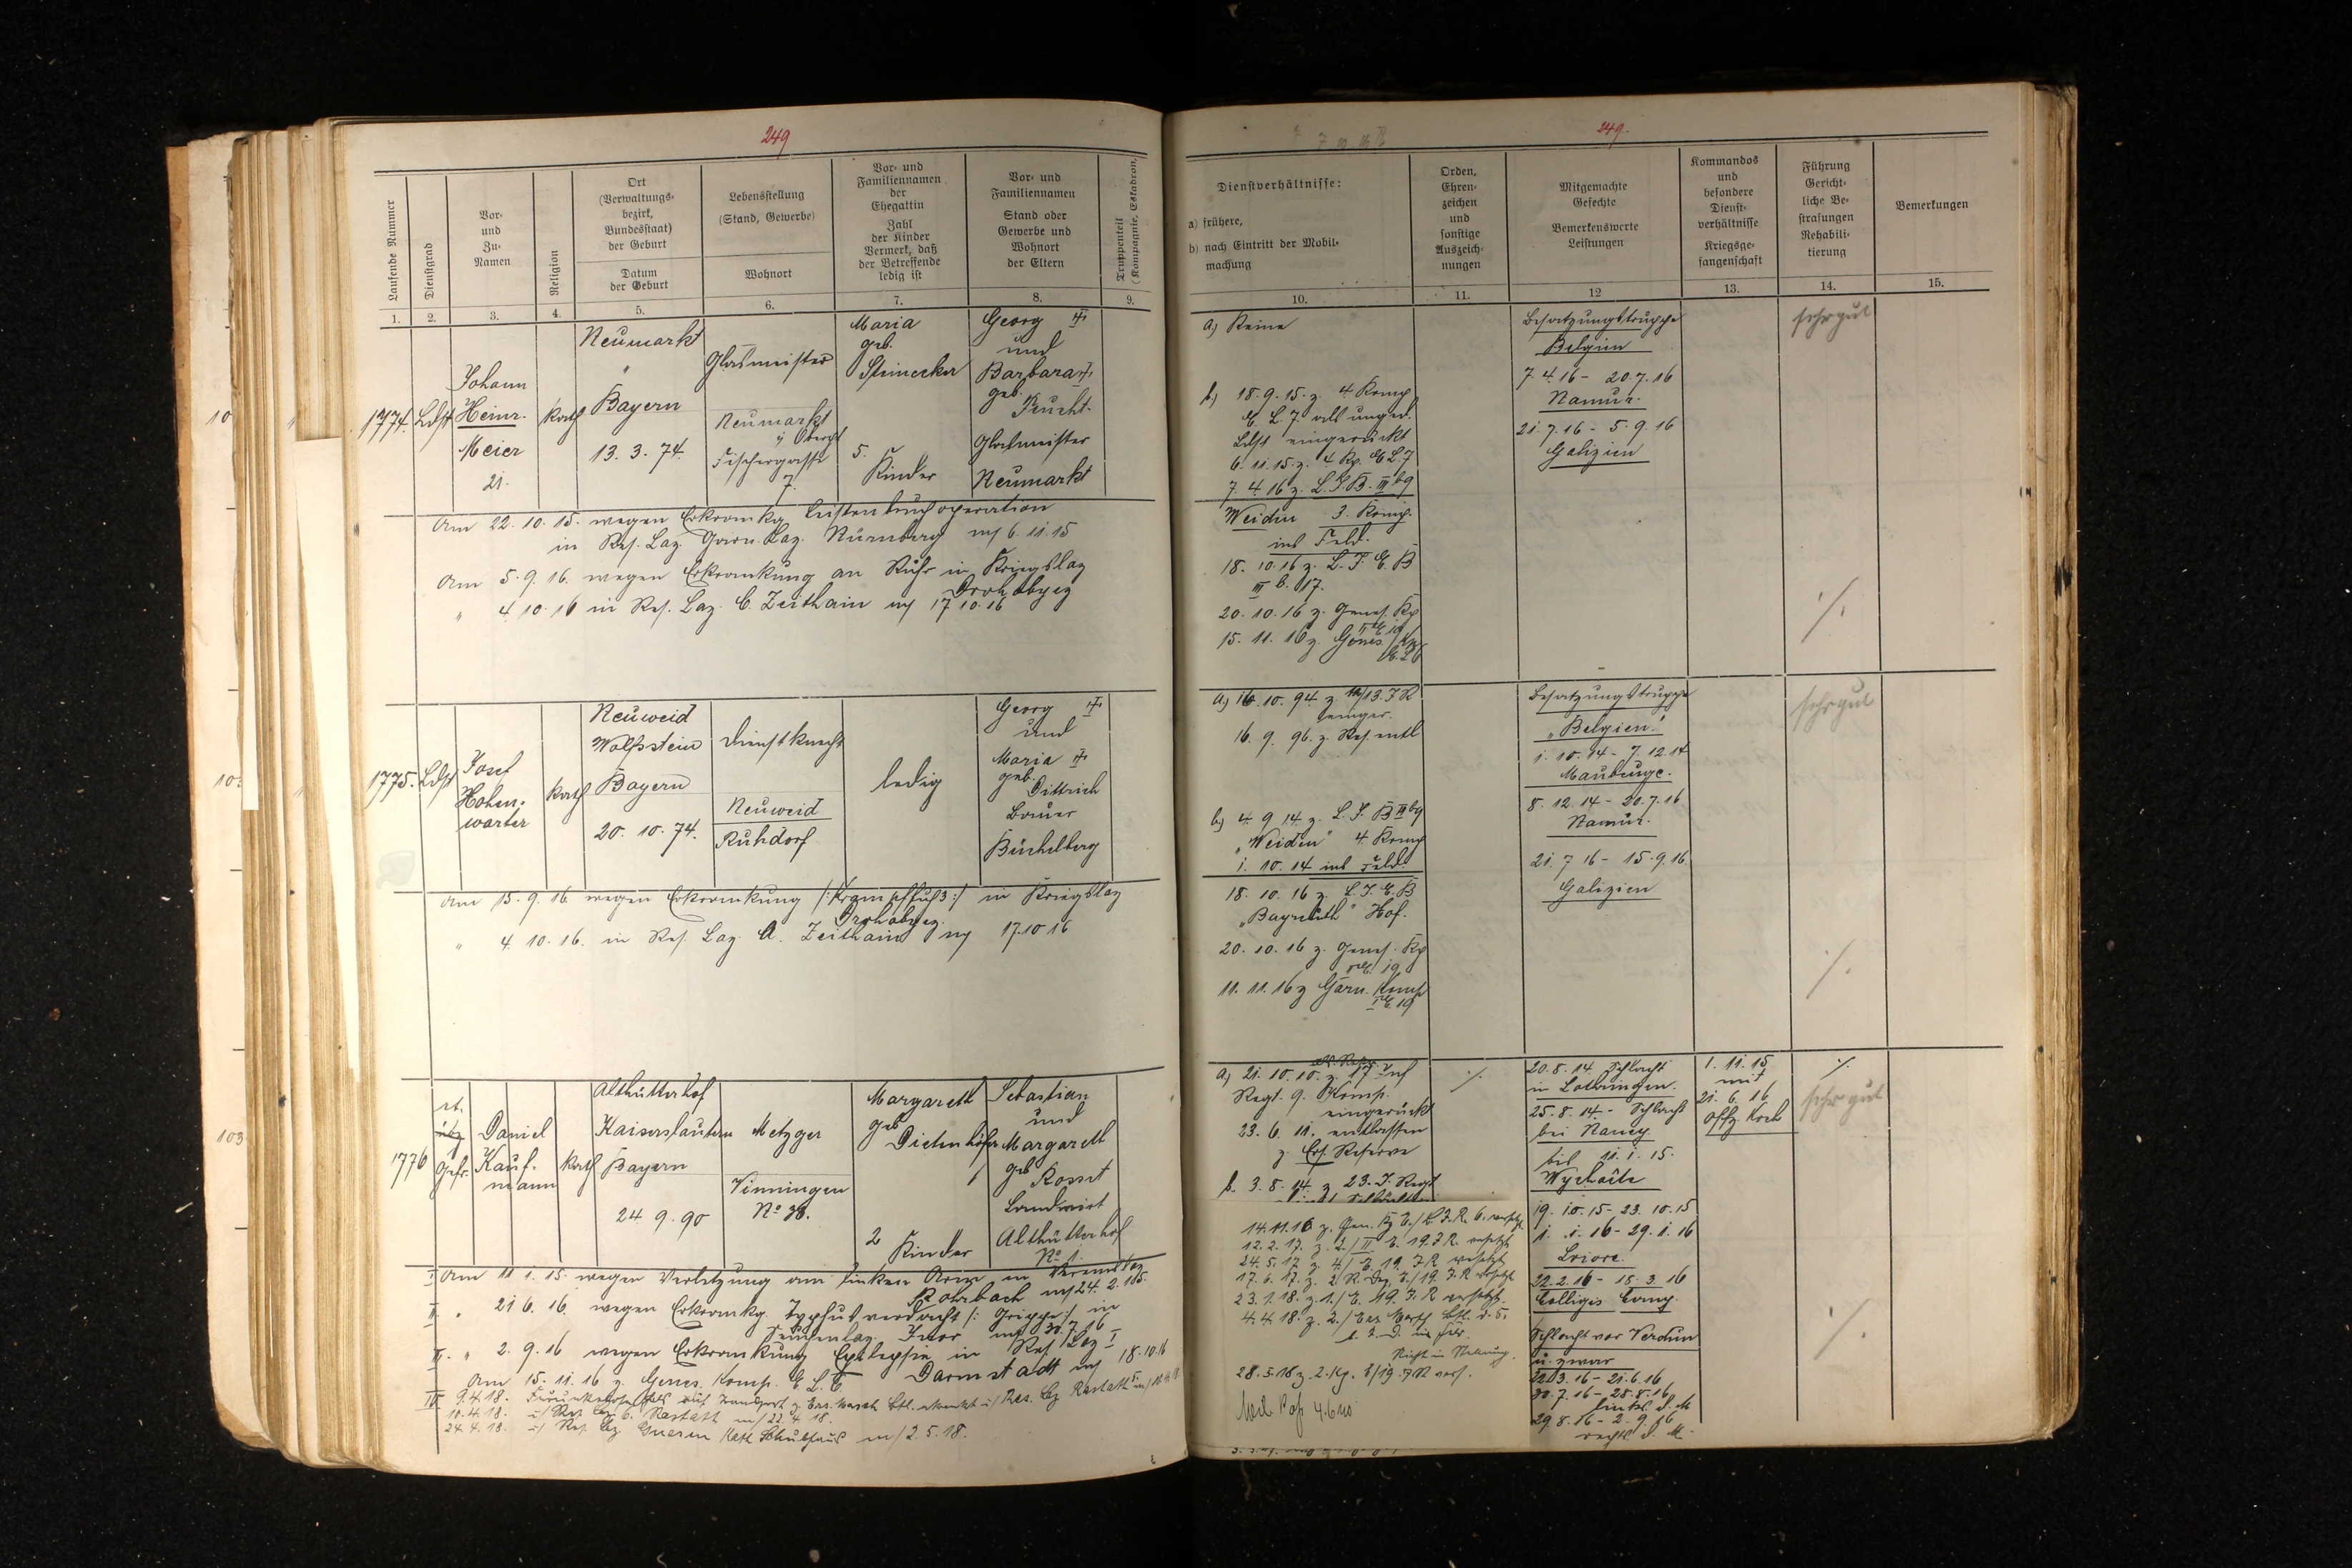 249
Laufende Nummer
Dienstgrad
Vor-
und
Zu-
Namen
Religion
Ort
(Verwaltungs-
bezirk,
Bundesstaat)
der Geburt
Datum
der Geburt
Lebensstellung
(Stand, Gewerbe)
Wohnort
Vor- und
Familiennamen
der
Ehegattin
Zahl
der Kinder
Vermerk, daß
der Betreffende
ledig ist
Vor- und
Familiennamen
Stand oder
Gewerbe und
Wohnort
der Eltern
Truppenteil
(Kompagnie, Eskadron)
1. 2. 3. 4. 5. 6. 7. 8. 9.
1774. Ldst
Johann
Heinr.
Meier
21.
Kath
Neumarkt
"
Bayern
13. 3. 74.
Glasmeister
Neumarkt
Fischergasse
7.
Maria
geb.
Steinecker
5.
Kinder
Georg ‡
und
Barbara ‡
geb.
Feucht.
Glasmeister
Neumarkt
Am 22. 10. 15. wegen Erkrankg Leistenbruchoperation
in Res. Laz. Garn. Laz. Nürnberg 6. 11. 15
Am 5. 9. 16. wegen Erkrankung an Ruhr in Kriegslaz
Drohobycz
" 4. 10. 16 in Res. Laz. C. Zeithain 17. 10. 16
1775. Ldst
Josef
Hohen-
warter
Kath
Neuweid
Wolfstein
Bayern
20. 10. 74.
Dienstknecht
Neuweid
Ruhdorf
ledig
Georg ‡
und
Maria ‡
geb.
Dittrich
Bauer
Büchelberg
Am 15. 9. 16 wegen Erkrankung in Kriegslaz
Drohobycz.
" 4. 10. 16. in Res. Laz. A. Zeithain 17. 10 16
1776
Gefr.
Daniel
Kauf-
mann
Kath
Althütterhof
Kaiserslautern
Bayern
24. 9. 90
Metzger
Vinningen
No 38.
Margareth
geb
Dietenhöfer
2
Kinder
Sebastian
und
Margareth
geb
Landwirt
Althütterhof
No 1.
I Am 11. 1. 15. wegen Verletzung am linken Arm in
Rohrbach 24. 2. 15.
II. " 21. 6. 16. wegen Erkrankg. Typhusverdacht /: Grippe :/ in
Seuchenlaz. 30. 7. 16
III. " 2. 9. 16 wegen Erkrankung Epilepsie in Res. Laz I
Darmstadt 18. 10. 16
Am 15. 11. 16 z. Genes. Komp. E. L. 6
IV 9. 4. 18.
10. 4. 18. Res. Laz 6. Rastatt 22. 4. 18.
24. 4. 18. Res. Laz Schulhaus 2. 5. 18.
249.
Dienstverhältnisse:
a) frühere,
b) nach Eintritt der Mobil-
machung
Orden,
Ehren-
zeichen
und
sonstige
Auszeich-
nungen
Mitgemachte
Gefechte
Bemerkenswerte
Leistungen
Kommandos
und
besondere
Dienst-
verhältnisse
Kriegsge-
fangenschaft
Führung
Gericht-
liche Be-
strafungen
Rehabili-
tierung
Bemerkungen
10. 11. 12 13. 14. 15.
a) Keine
b) 18. 9. 15. z. 4 Komp
E. L. 7. als unged.
Ldst eingerückt
6. 11. 15. z. 4 Kp. E L 7
7. 4. 16 z. L. I. B. III b 9
Weiden 3. Komp.
ins Feld.
18. 10. 16 z. L. I. E. B
III b. 17.
20. 10. 16 z. Genes. Kp
15. 11. 16 z. Genes. Kp
Besatzungstruppe
Belgien
7. 4. 16 - 20. 7. 16
Namur.
21. 7. 16 - 5. 9. 16
Galizien
sehr gut
./.
a) 16. 10. 94. z. 13. I R
16. 9. 96. z. Res. entl
b) 4. 9 14. z. L. I. B III b 9
"Weiden" 4. Komp
1. 10. 14 ins Feld
18. 10. 16 z. L. I. E. B
"Bayreuth" Hof.
20. 10. 16 z. Genes. Kp
E. 19
11. 11. 16 z Garn. Komp
E. 19
Besatzungstruppe
"Belgien."
1. 10. 14 - 7. 12. 14
Maubeuge.
8. 12. 14 - 20. 7. 16.
Namur.
21. 7 16 - 15. 9. 16
Galizien
sehr gut
./.
a) 21. 10. 10. z. 17 Inf
Regt. 9. Komp.
eingerückt
23. 6. 11. entlassen
z. Ers. Reserve
b. 3. 8. 14 z 23. I. Regt
14. 11. 16 z. Gen. Kp E./L. I. R. 6. versetzt.
12. 2. 17. z. 2./II E. 19. I R. versetzt
24. 5. 17 z. 4./E. 19. I R versetzt
17. 6. 17. z. 2 R. /19. I. R versetzt
23. 1. 18. z. 1./E. 19. I. R versetzt.
4. 4. 18. z. 2./
28. 5. 18 z. 2. Kp. E/19. I R vers.
./.
20. 8. 14. Schlacht
in Lothringen.
25. 8. 14. - Schlacht
bei Nancy
bis 11. 1. 15.
19. 10. 15 - 23. 10. 15
1. 1. 16 - 29. 1. 16
22. 2. 16 - 18. 3. 16
Schlacht vor Verdun
u. zwar
22. 3. 16 - 21. 6. 16
30. 7. 16 - 28. 8. 16
links d. M
29. 8. 16 - 2. 9. 16
rechts d. M.
1. 11. 15
mit
21. 6. 16
Offz. Koch
./.
sehr gut
./.